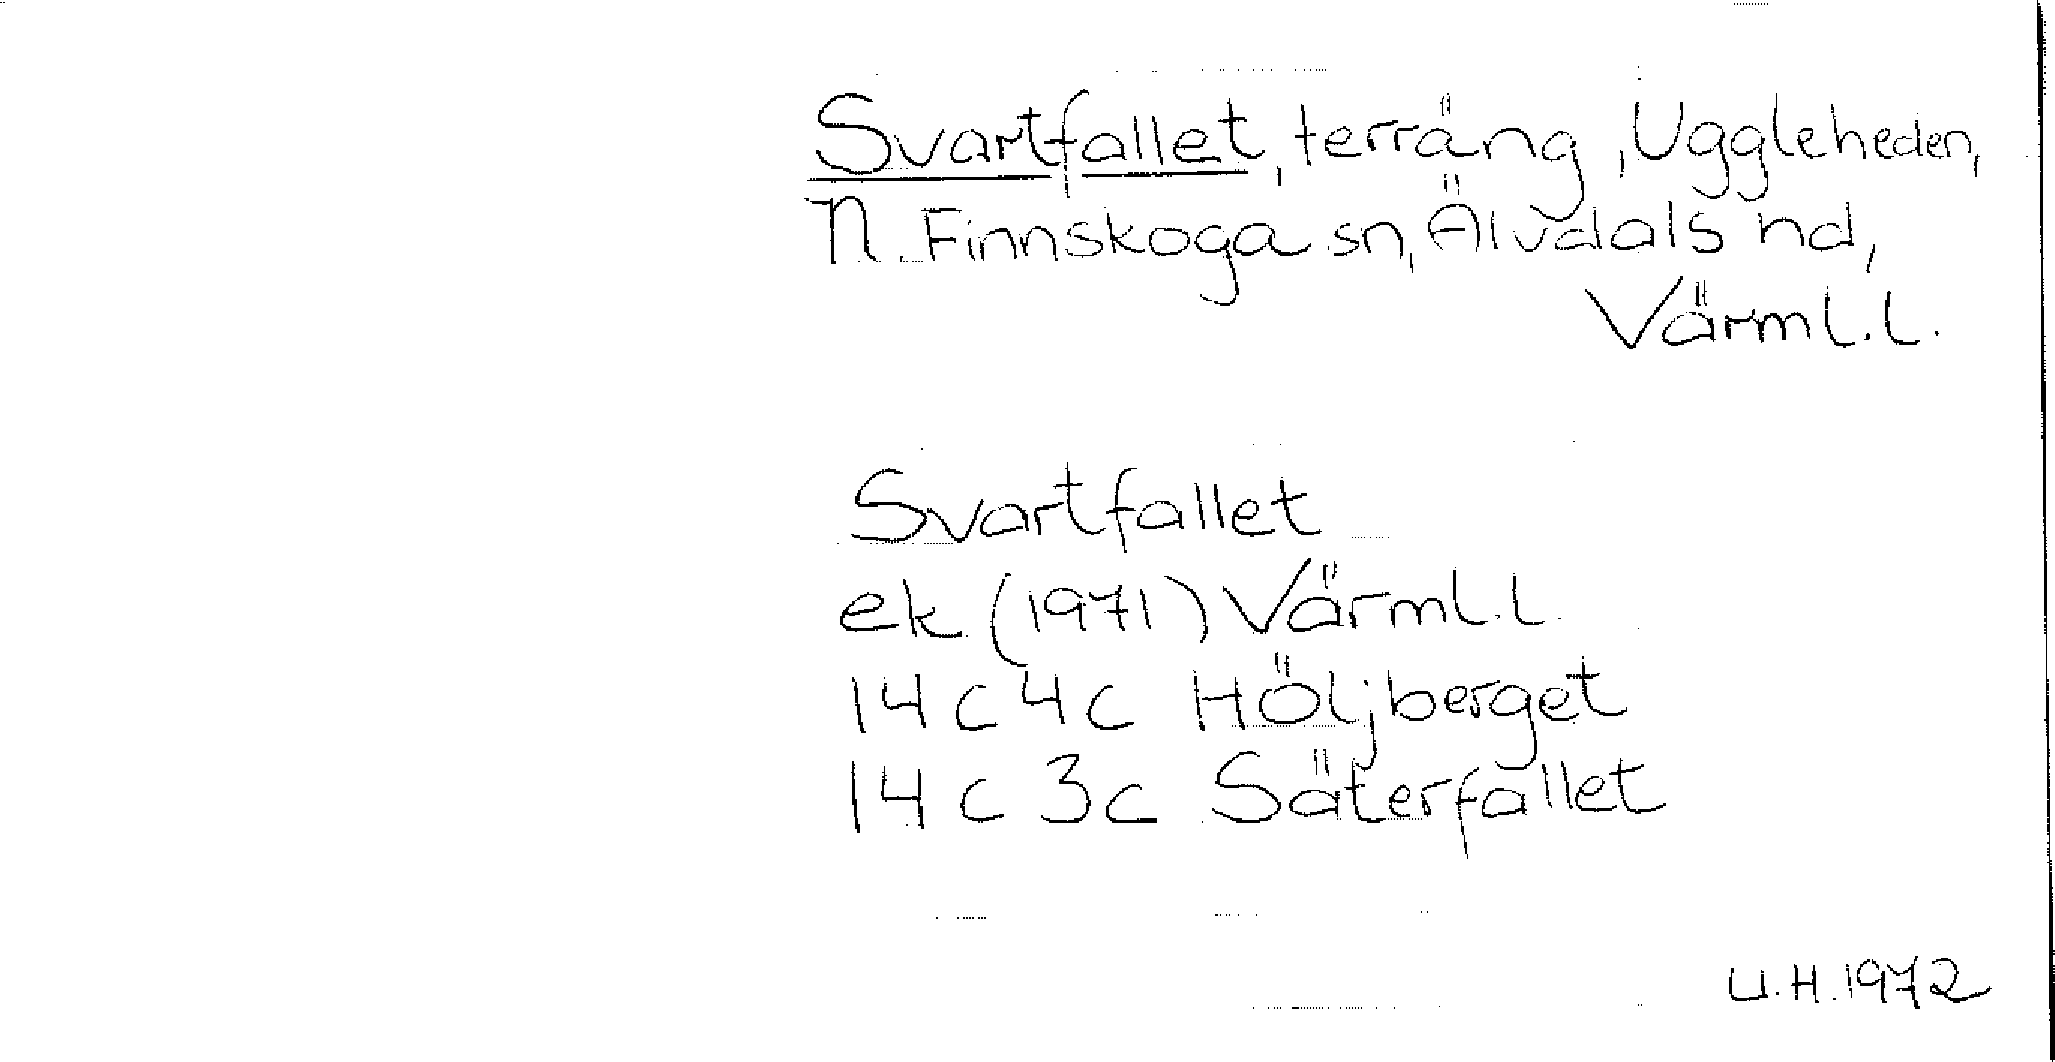 Svartfallet, terräng, Uggleheden,
N. Finnskoga sn, Älvdals hd,
Värml.l.
Svartfallet
ek (1971) Värml.l.
14 c 4 c Höljberget
14 c 3 c Säterfallet
U.H. 1972